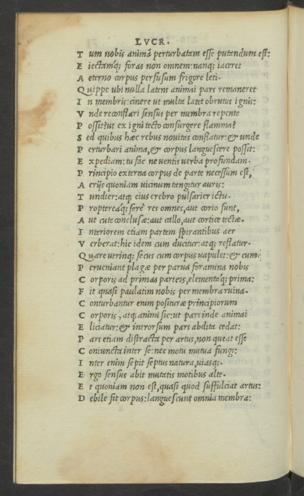 LVCR.
T um nobis animā perturbatam esse putendum est:
E iectamq; foras non omnem: nanq; iaceret
A eterno corpus perfusum frigore leti.
Q uippe ubi nulla latens animai pars remaneret
I n membris: cinere ut multa latet obrutus ignis:
V nde reconflari sensus per membra repente
P ossitus ex igni tecto consurgere flamma?
S ed quibus hæc rebus nouitas constatur: & unde
P erturbari anima, & corpus languescere possit:
E xpediam: tu fac ne ventis verba profundam.
P rincipio externa corpus de parte necessum est,
A eriis quoniam uicinum tangitur auris:
T undier: atq; eius crebro pulsarier ictu.
P ropterea q; fere res omnes, aut corio sunt,
A ut etiā conchis: aut callo, aut cortice tectæ.
I nteriorem etiam partem spirantibus aer
V erberat: hic idem cum ducitur: atq; reflatur.
Q uare utrinq; secus cum corpus uapulet: & cum
P erueniant plagæ per parua foramina nobis
C orporis ad primas parteis, elementaq; prima:
F it quasi paulatim nobis per membra ruina.
C onturbantur enim posituræ principiorum
C orporis, atq; animi sic: ut pars inde animai
E liciatur: & introrsum pars abdita cedat:
P ars etiam distracta per artus, non queat esse
C oniuncta inter se: nec motu mutua fungi:
I nter enim sepit septus natura, uiasq;.
E rgo sensus abit mutatis motibus alte.
E t quoniam non est, quasi quod suffulciat artus:
D ebile fit corpus: languescunt omnia membra: